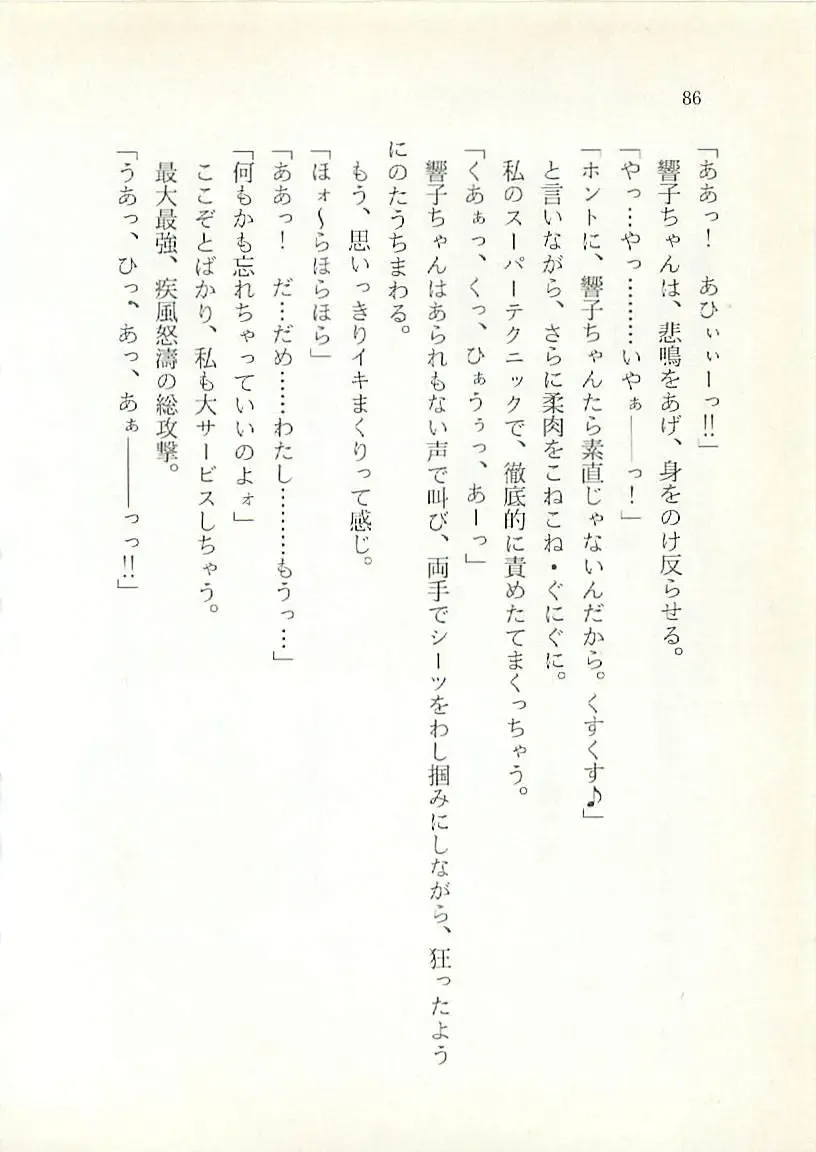 86
「ああっ！　あひぃぃーっ!!」
響子ちゃんは、悲鳴をあげ、身をのけ反らせる。
「やっ…やっ………いやぁ――っ！」
「ホントに、響子ちゃんたら素直じゃないんだから。くすくす♪」
と言いながら、さらに柔肉をこねこね・ぐにぐに。
私のスーパーテクニックで、徹底的に責めたてまくっちゃう。
「くあぁっ、くっ、ひぁうぅっ、あーっ」
響子ちゃんはあられもない声で叫び、両手でシーツをわし掴みにしながら、狂ったよう
にのたうちまわる。
もう、思いっきりイキまくりって感じ。
「ほォ～らほらほら」
「ああっ！　だ…だめ……わたし………もうっ…」
「何もかも忘れちゃっていいのよォ」
ここぞとばかり、私も大サービスしちゃう。
最大最強、疾風怒濤の総攻撃。
「うあっ、ひっ、あっ、あぁ――――っっ!!」